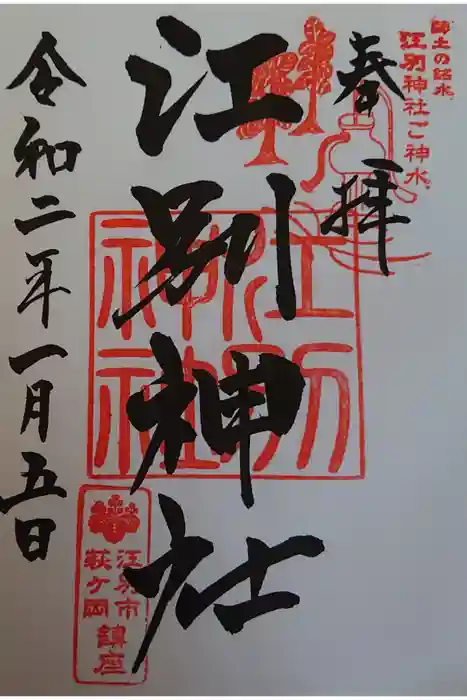 郷土の銘水
江別神社ご神水
奉拝
江別神社
江別神社
江別市
萩ケ岡
鎮座
令和二年一月五日